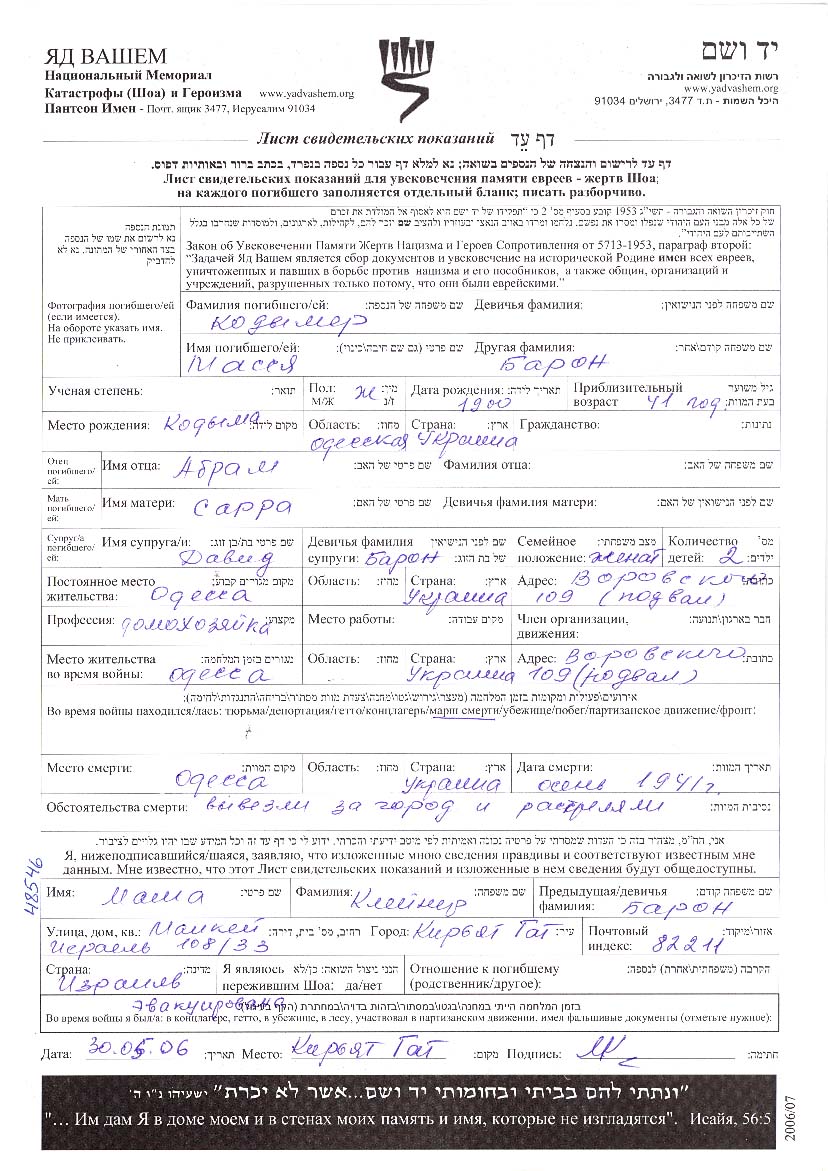 ЯД ВАШЕМ
Национальный Мемориал
Катастрофы (Шоа) и Героизма www.yadvashem.org
Пантеон Имен - Почт. ящик 3477, Иерусалим 91034
יד ושם
רשות הזיכרון לשואה ולגבורה
www.yadvashem.org
היכל השמות - ת.ד 3477, ירושלים 91034
Лист свидетельских показаний דף עֵד
דף עד לרישום והנצחה של הנספים בשואה; נא למלא דף עבור כל נספה בנפרד, בכתב ברור ובאותיות דפוס.
Лист свидетельских показаний для увековечения памяти евреев - жертв Шоа;
на каждого погибшего заполняется отдельный бланк; писать разборчиво.
תמונת הנספה
נא לרשום את שמו של הנספה
בצד האחורי של התמונה. נא לא
להדביק
Фотография погибшего/ей
(если имеется).
На обороте указать имя.
Не приклеивать.
חוק זכרון השואה והגבורה - תשי"ג 1953 קובע בסעיף מס' 2 כי "תפקידו של יד ושם הוא לאסוף אל המולדת את זכרם
של כל אלה מבני העם היהודי שנפלו ומסרו את נפשם, נלחמו ומרדו באויב הנאצי ובעוזריו ולהציב שם וזכר להם, לקהילות, לארגונים, ולמוסדות שנחרבו בגלל
השתייכותם לעם היהודי".
Закон об Увековечении Памяти Жертв Нацизма и Героев Сопротивления от 5713-1953, параграф второй:
“Задачей Яд Вашем является сбор документов и увековечение на исторической Родине имен всех евреев,
уничтоженных и павших в борьбе против нацизма и его пособников, а также общин, организаций и
учреждений, разрушенных только потому, что они были еврейскими.”
Фамилия погибшего/ей: שם משפחה של הנספה: Девичья фамилия: שם משפחה לפני הנישואין:
Кодымер
Имя погибшего/ей: שם פרטי (גם שם חיבה/כינוי): Другая фамилия: שם משפחה קודם/אחר:
Масся Барон
Ученая степень: תואר: Пол: М/Ж ж מין: ז/נ Дата рождения: תאריך לידה: 1900 Приблизительный возраст 41 год. גיל משוער בעת המוות:
Место рождения: Кодыма מקום לידה: Область: מחוז: Страна: ארץ: Гражданство: נתינות:
одесская Украина
Отец погибшего/ей: Имя отца: Абрам שם פרטי של האב: Фамилия отца: שם משפחה של האב:
Мать погибшего/ей: Имя матери: Сарра שם פרטי של האם: Девичья фамилия матери: שם לפני הנישואין של האם:
Супруг/а погибшего/ей: Имя супруга/и: שם פרטי בת/בן זוג: Девичья фамилия שם לפני הנישואין Семейное מצב משפחתי: Количество מס'
Давид супруги: Барон של בת הזוג: положение: женат детей: 2 ילדים:
Постоянное место מקום מגורים קבוע: Область: מחוז: Страна: ארץ: Адрес: Воровского כתובת:
жительства: Одесса Украина 109 (подвал)
Профессия: домохозяйка מקצוע: Место работы: מקום עבודה: Член организации, חבר בארגון/תנועה:
движения:
Место жительства מגורים בזמן המלחמה: Область: מחוז: Страна: ארץ: Адрес: Воровского כתובת:
во время войны: Одесса Украина 109 (подвал)
אירועים/פעילות ומקומות בזמן המלחמה (מעצר/גירוש/גטו/מחנה/צעדת מוות/מסתור/בריחה/התנגדות/לחימה):
Во время войны находился/лась: тюрьма/депортация/гетто/концлагерь/марш смерти/убежище/побег/партизанское движение/фронт:
Место смерти: מקום המוות: Область: מחוז: Страна: ארץ: Дата смерти: תאריך המוות:
Одесса Украина осень 1941г.
Обстоятельства смерти: вывезли за город и растреляли נסיבות המוות:
אני, הח"מ, מצהיר בזה כי העדות שמסרתי על פרטיה נכונה ואמיתית לפי מיטב ידיעתי והכרתי. ידוע לי כי דף עד זה וכל המידע שבו יהיו גלויים לציבור.
Я, нижеподписавшийся/шаяся, заявляю, что изложенные мною сведения правдивы и соответствуют известным мне
данным. Мне известно, что этот Лист свидетельских показаний и изложенные в нем сведения будут общедоступны.
48546
Имя: Мама שם פרטי: Фамилия: Клейнер שם משפחה: Предыдущая/девичья שם משפחה קודם:
фамилия: Барон
Улица, дом, кв.: רחוב, מס' בית, דירה: Город: Кирьят Гат עיר: Почтовый אזור/מיקוד:
Исраель 108/33 индекс: 82211
Страна: מדינה: Я являюсь הנני ניצול השואה: כן/לא Отношение к погибшему הקרבה (משפחתית/אחרת) לנספה:
Израиль пережившим Шоа: да/нет (родственник/другое):
Эвакуирована
Во время войны я был/а: в концлагере, гетто, в убежище, в лесу, участвовал в партизанском движении. имел фальшивые документы (отметьте нужное):
Дата: 30.05.06 תאריך: Место: Кирьят Гат מקום: Подпись: חתימה:
"ונתתי להם בביתי ובחומותי יד ושם...אשר לא יכרת" ישעיהו נ"ו ה'
"… Им дам Я в доме моем и в стенах моих память и имя, которые не изгладятся". Исайя, 56:5
2006/07